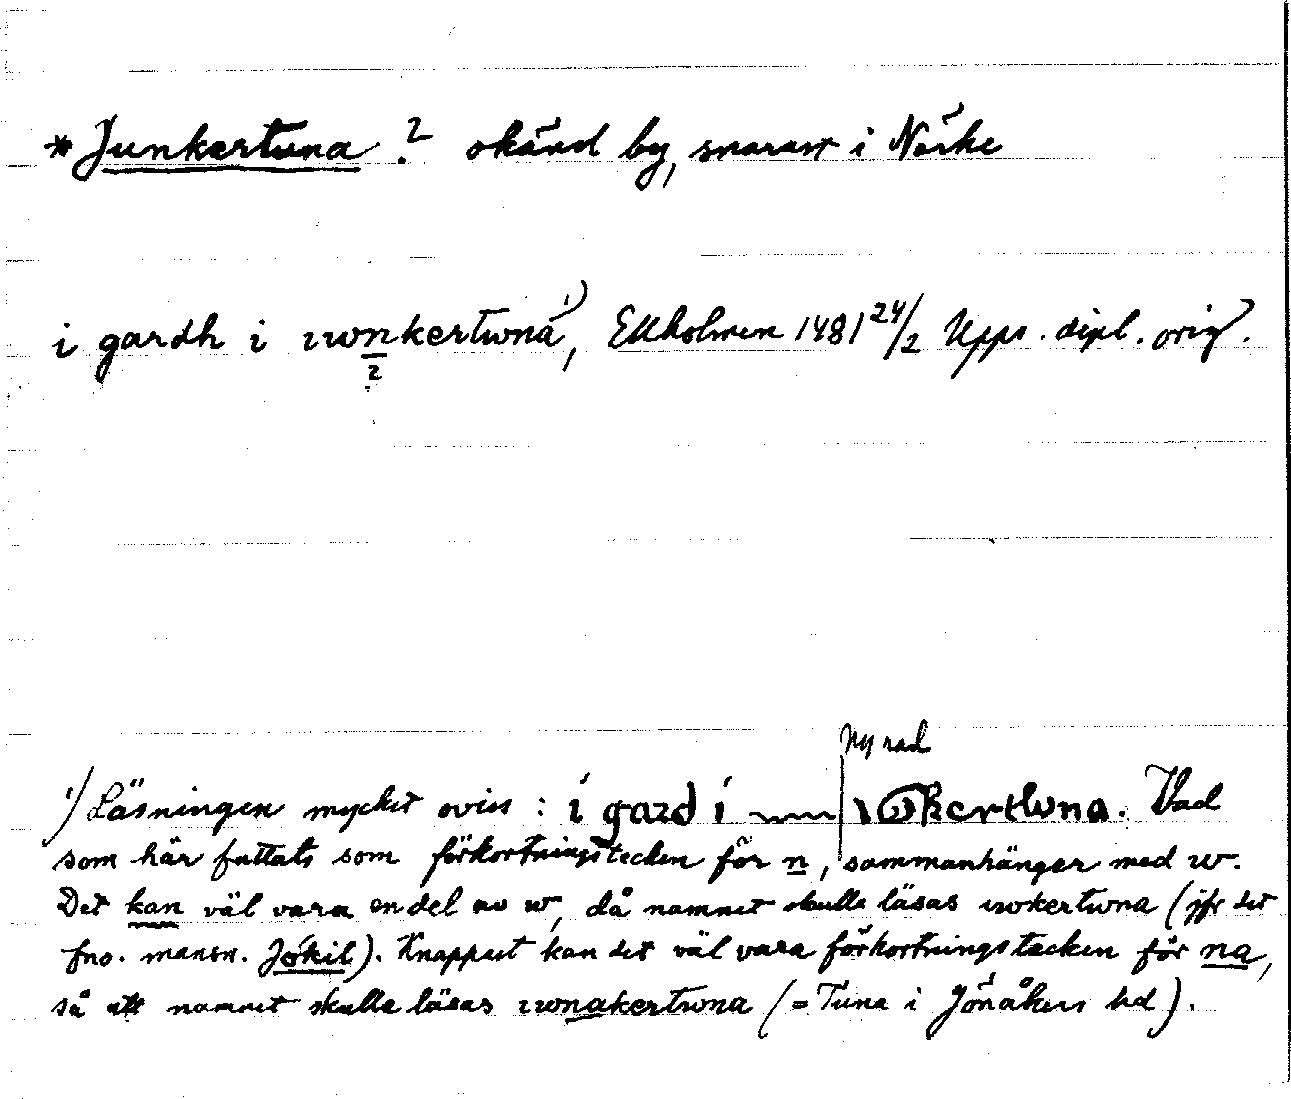 * Junkertuna ? okänd by, snarast i Närke
i gardh i ıwnkertwna 1), Ekholmen 1481 24/2 Upps. dipl. orig.
?
Ny rad
1) Läsningen mycket oviss : i gard i | ıwkertwna. Vad
som här fattats som förkortningstecken för n, sammanhänger med w.
Det kan väl vara en del av w, då namnet skulle läsas ıwkertwna (jfr det
fno. mansn. Jókil). Knappast kan det väl vara förkortningstecken för na,
så att namnet skulle läsas ıwnakertwna (= Tuna i Jönåkers hd).